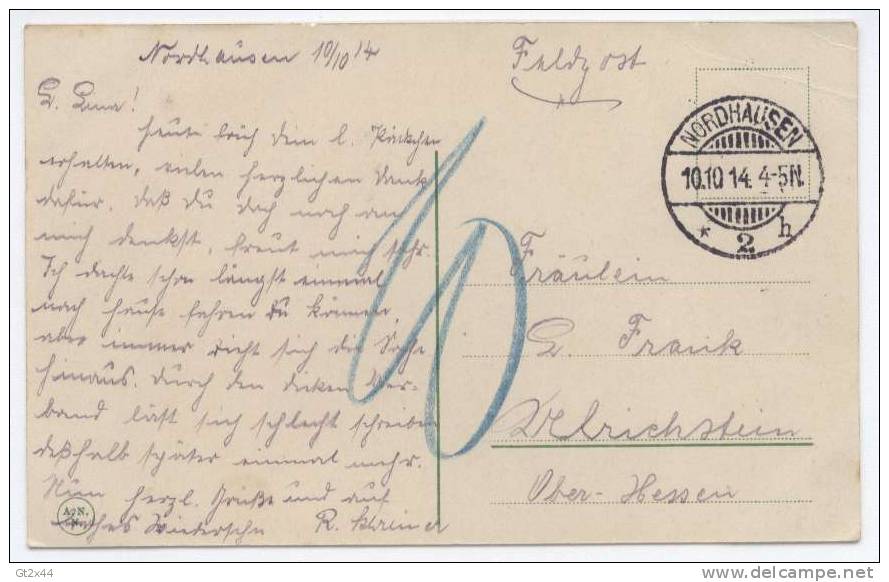 Nordhausen 10/10 14
L. Lina!
Heute früh dein l. Päckchen
erhalten, vielen herzlichen Dank
dafür. Daß Du doch noch an
mich denkst, freut mich sehr.
Ich dachte schon längst einmal
nach Hause fahren zu können,
aber immer zieht sich die Sache
hinaus. Durch den dicken Ver-
band läßt sich schlecht schreiben
deßhalb später einmal mehr.
Nun herzl. Grüße und auf
Wiedersehn R.
Feldpost
NORDHAUSEN
10.10.14. 4-5N.
* 2 h
10
Fräulein
L. Frank
Ulrichstein
Ober-Hessen
Gt2x44
www.delcampe.net